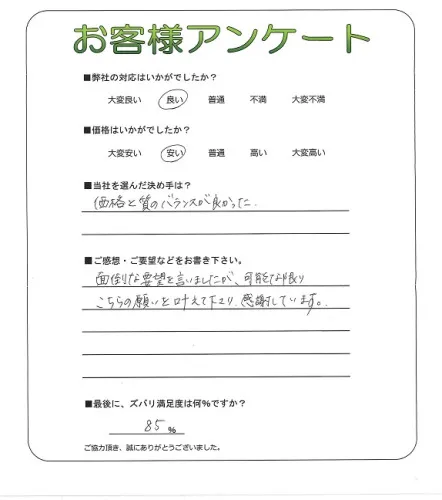 お客様アンケート
■弊社の対応はいかがでしたか？
大変良い 良い 普通 不満 大変不満
■価格はいかがでしたか？
大変安い 安い 普通 高い 大変高い
■当社を選んだ決め手は？
価格と質のバランスが良かった.
■ご感想・ご要望などをお書き下さい。
面倒な要望を言いましたが、可能な限り
こちらの願いを叶えて下さり、感謝しています。
■最後に、ズバリ満足度は何%ですか？
85 %
ご協力頂き、誠にありがとうございました。